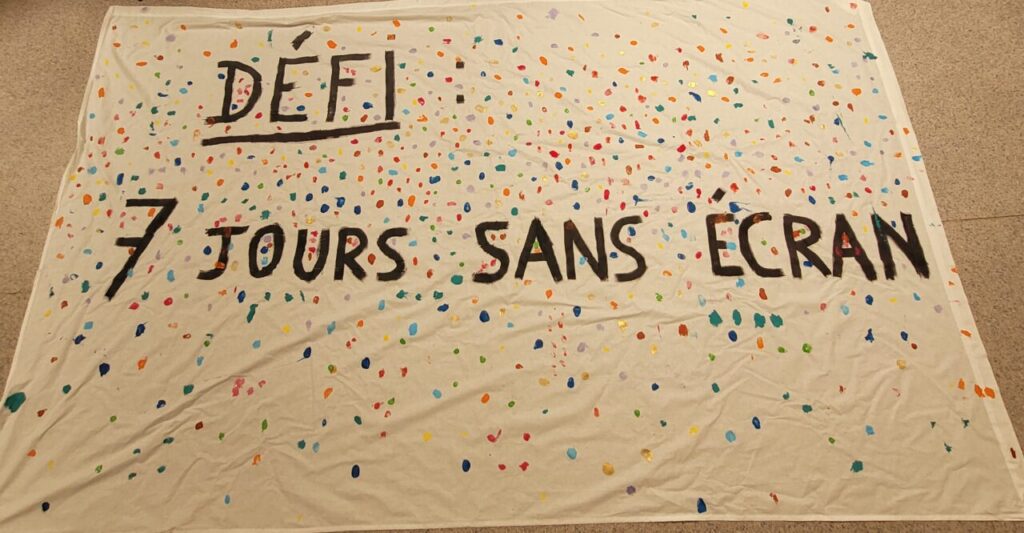 DÉFI :
7 JOURS SANS ÉCRAN